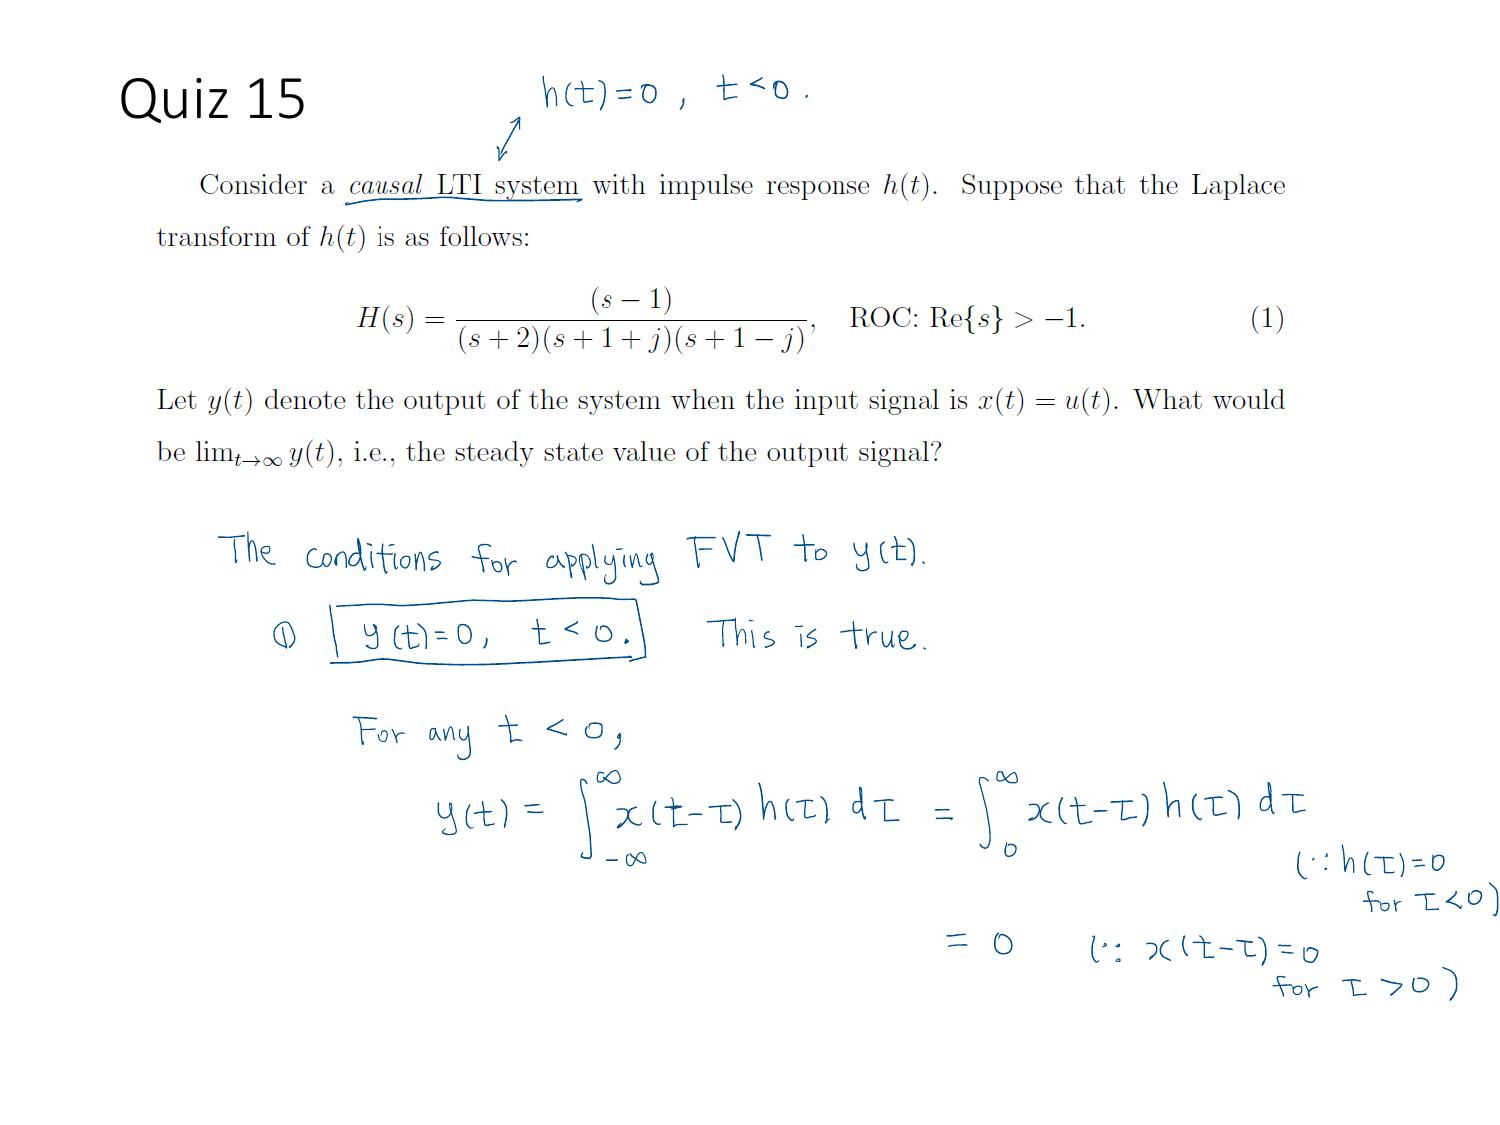 Quiz 15
h(t)=0, t<0.
Consider a causal LTI system with impulse response h(t). Suppose that the Laplace
transform of h(t) is as follows:
H(s) = (s − 1) / ((s + 2)(s + 1 + j)(s + 1 − j)), ROC: Re{s} > −1. (1)
Let y(t) denote the output of the system when the input signal is x(t) = u(t). What would
be lim_{t→∞} y(t), i.e., the steady state value of the output signal?
The conditions for applying FVT to y(t).
① y(t)=0, t<0. This is true.
For any t < 0,
y(t) = ∫_{-∞}^{∞} x(t-τ) h(τ) dτ = ∫_{0}^{∞} x(t-τ) h(τ) dτ
(∵ h(τ)=0
for τ<0)
= 0 (∵ x(t-τ)=0
for τ >0)